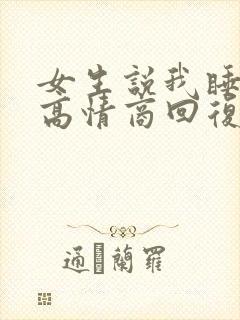 女生説我睡
高情商回復
通 蘭羅